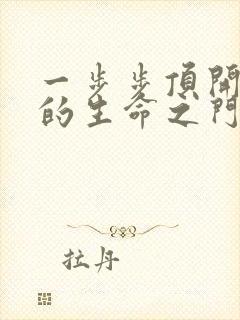 一步步頂開
的生命之門
拉丹